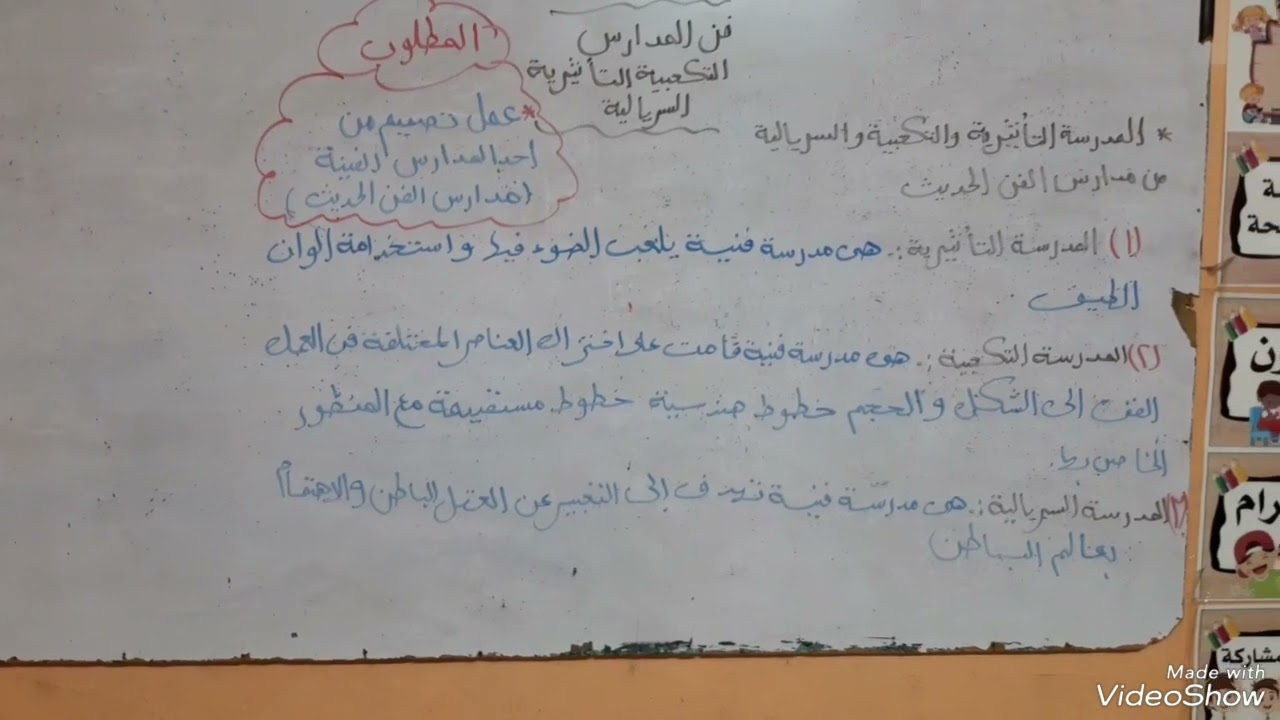 فن المدارس
التكعيبية التأثيرية
السريالية
المطلوب
* عمل تصميم من
احد المدارس الفنية
(مدارس الفن الحديث)
* المدرسة التأثيرية والتكعيبية والسريالية
من مدارس الفن الحديث
(١) المدرسة التأثيرية :. هى مدرسة فنية يلعب الضوء فيها واستخدامة الوان
الطيف
(٢) المدرسة التكعيبية :. هى مدرسة فنية قامت على اختزال العناصر المختلفة فى العمل
الفنى الى الشكل والحجم خطوط هندسية خطوط مستقيمة مع المنظور
الخاص بها.
(٣) المدرسة السريالية :. هى مدرسة فنية تهدف إلى التعبير عن العقل الباطن والاهتمام
بعالم الباطن
ة
حة
ن
رام
مشاركة
Made with
VideoShow